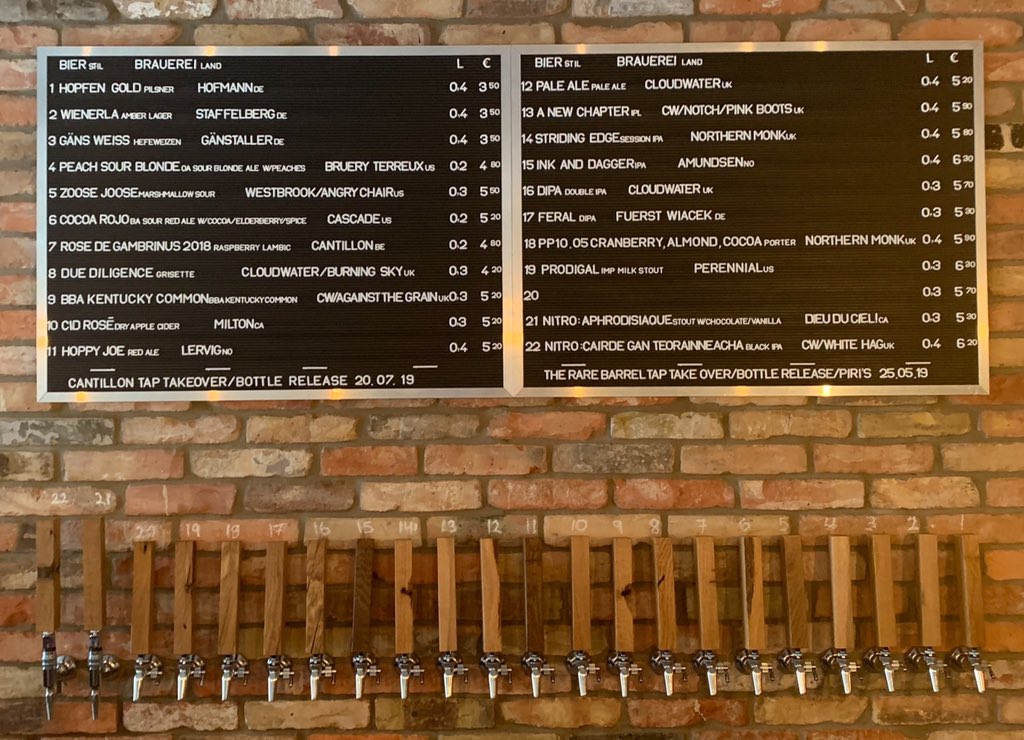 BIER STIL BRAUEREI LAND L €
1 HOPFEN GOLD PILSNER HOFMANN DE 0.4 3 50
2 WIENERLA AMBER LAGER STAFFELBERG DE 0.4 3 50
3 GÄNS WEISS HEFEWEIZEN GÄNSTALLER DE 0.4 3 50
4 PEACH SOUR BLONDE OA SOUR BLONDE ALE W/PEACHES BRUERY TERREUX US 0.2 4 80
5 ZOOSE JOOSE MARSHMALLOW SOUR WESTBROOK/ANGRY CHAIR US 0.3 5 50
6 COCOA ROJO BA SOUR RED ALE W/COCOA/ELDERBERRY/SPICE CASCADE US 0.2 5 20
7 ROSE DE GAMBRINUS 2018 RASPBERRY LAMBIC CANTILLON BE 0.2 4 80
8 DUE DILIGENCE GRISETTE CLOUDWATER/BURNING SKY UK 0.3 4 20
9 BBA KENTUCKY COMMON BBA KENTUCKY COMMON CW/AGAINST THE GRAIN UK 0.3 5 20
10 CID ROSÉ DRY APPLE CIDER MILTON CA 0.3 5 20
11 HOPPY JOE RED ALE LERVIG NO 0.4 5 20
CANTILLON TAP TAKEOVER/BOTTLE RELEASE 20.07.19
BIER STIL BRAUEREI LAND L €
12 PALE ALE PALE ALE CLOUDWATER UK 0.4 5 20
13 A NEW CHAPTER IPL CW/NOTCH/PINK BOOTS UK 0.4 5 90
14 STRIDING EDGE SESSION IPA NORTHERN MONK UK 0.4 5 80
15 INK AND DAGGER IPA AMUNDSEN NO 0.4 6 30
16 DIPA DOUBLE IPA CLOUDWATER UK 0.3 5 70
17 FERAL DIPA FUERST WIACEK DE 0.3 5 30
18 PP10.05 CRANBERRY, ALMOND, COCOA PORTER NORTHERN MONK UK 0.4 5 90
19 PRODIGAL IMP MILK STOUT PERENNIAL US 0.3 6 30
20 0.3 5 70
21 NITRO: APHRODISIAQUE STOUT W/CHOCOLATE/VANILLA DIEU DU CIEL! CA 0.3 5 30
22 NITRO: CAIRDE GAN TEORAINNEACHA BLACK IPA CW/WHITE HAG UK 0.4 6 20
THE RARE BARREL TAP TAKE OVER/BOTTLE RELEASE/PIRI'S 25.05.19
22 21 20 19 18 17 16 15 14 13 12 11 10 9 8 7 6 5 4 3 2 1